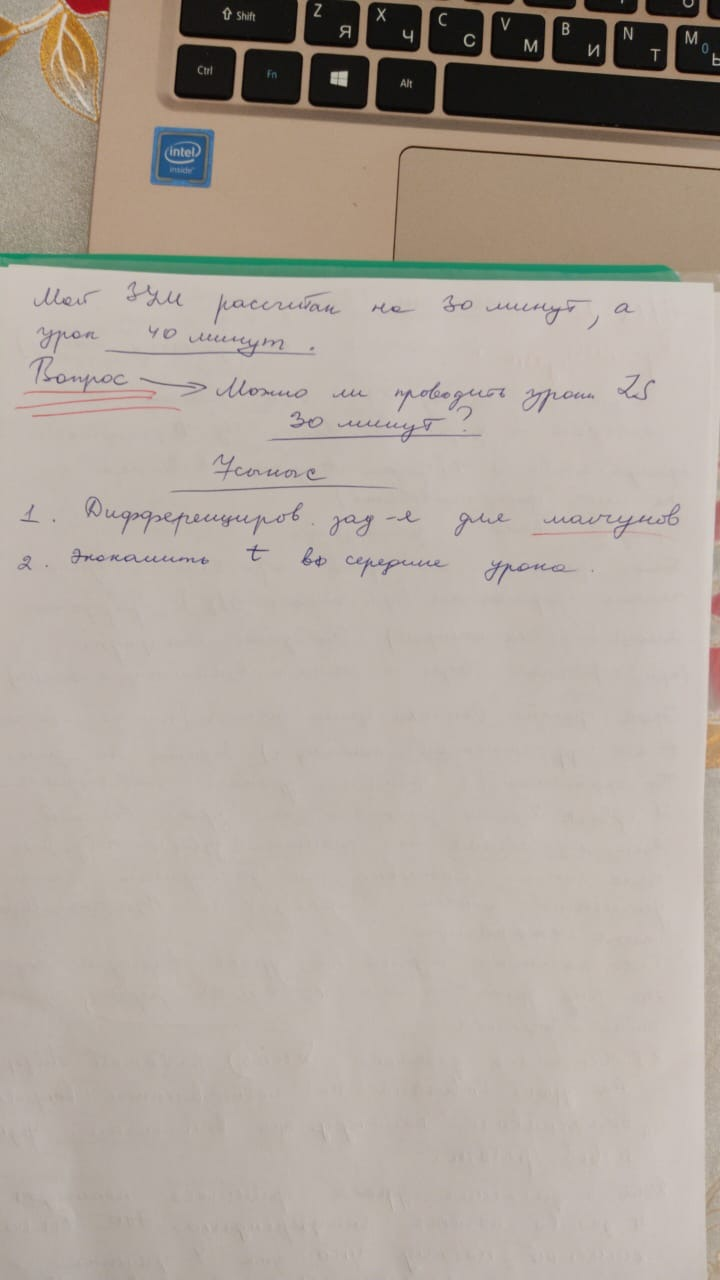 Shift
Z Я X Ч C С V М B И N Т M Ь 0
Ctrl Fn Alt
intel
inside
Мой ЗУМ рассчитан на 30 минут, а
урок 40 минут.
Вопрос → Можно ли проводить уроки
30 минут?
7 сынып
1. Дифференциров. зад-я для молчунов
2. Экономить t в середине урока.